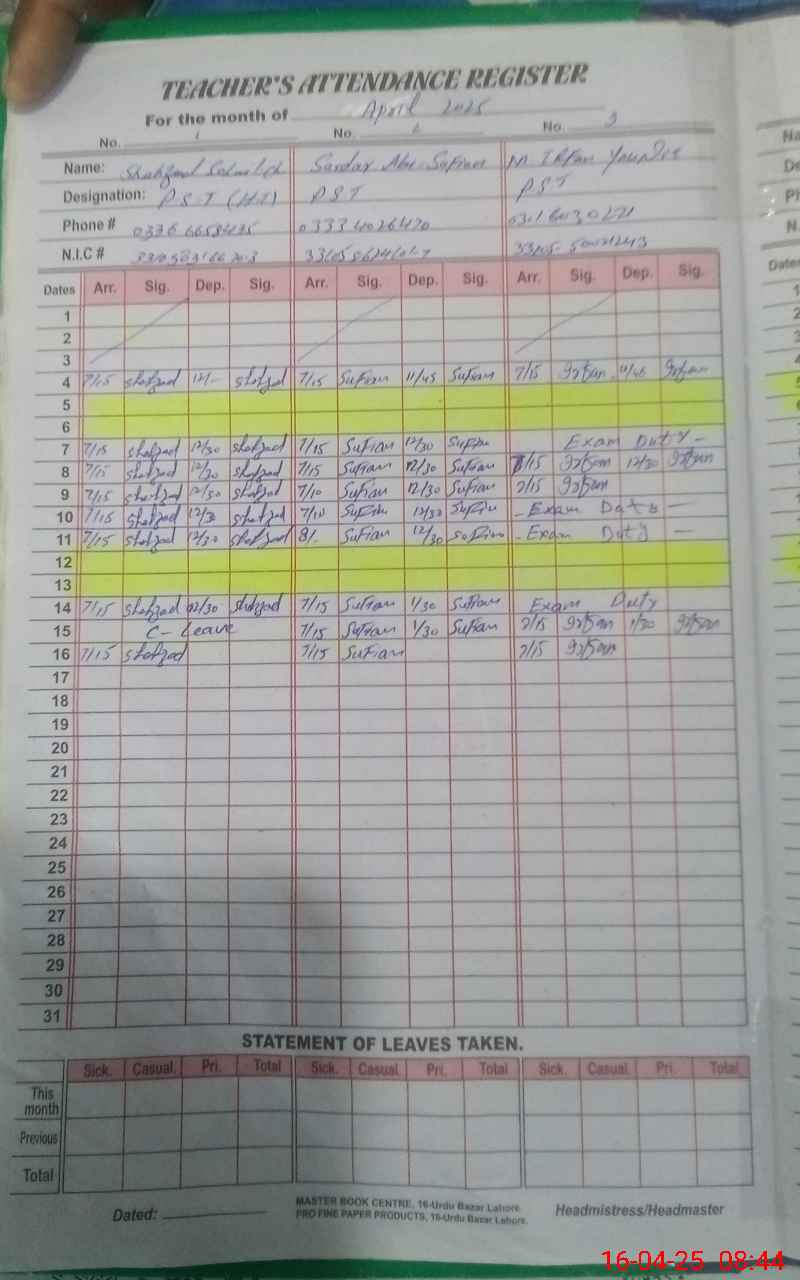 TEACHER'S ATTENDANCE REGISTER
For the month of April 2025
No. 1 No. 2 No. 3
Name: Shahzad Sardar Abu Sufian M Irfan Younis
Designation: P.S.T (H.T) PST PST
Phone # 0333 4026420
N.I.C #
Dates Arr. Sig. Dep. Sig. Arr. Sig. Dep. Sig. Arr. Sig. Dep. Sig.
1
2
3
4 7/15 Shahzad 12/- Shahzad 7/15 Sufian 11/45 Sufian 7/15 Irfan 11/45 Irfan
5
6
7 7/15 Shahzad 12/30 Shahzad 7/15 Sufian 12/30 Sufian Exam Duty -
8 7/15 Shahzad 12/30 Shahzad 7/15 Sufian 12/30 Sufian 7/15 Irfan 12/30 Irfan
9 7/15 Shahzad 12/30 Shahzad 7/10 Sufian 12/30 Sufian 7/15 Irfan
10 7/15 Shahzad 12/30 Shahzad 7/10 Sufian 12/30 Sufian - Exam Duty -
11 7/15 Shahzad 12/30 Shahzad 8/- Sufian 12/30 Sufian - Exam Duty -
12
13
14 7/15 Shahzad 12/30 Shahzad 7/15 Sufian 1/30 Sufian Exam Duty
15 C-Leave 7/15 Sufian 1/30 Sufian 7/15 Irfan 1/30 Irfan
16 7/15 Shahzad 7/15 Sufian 7/15 Irfan
17
18
19
20
21
22
23
24
25
26
27
28
29
30
31
STATEMENT OF LEAVES TAKEN.
Sick. Casual. Pri. Total Sick. Casual. Pri. Total Sick. Casual. Pri. Total
This month
Previous
Total
Dated: MASTER BOOK CENTRE, 16-Urdu Bazar Lahore. Headmistress/Headmaster
PRO FINE PAPER PRODUCTS, 16-Urdu Bazar Lahore.
16-04-25 08:44